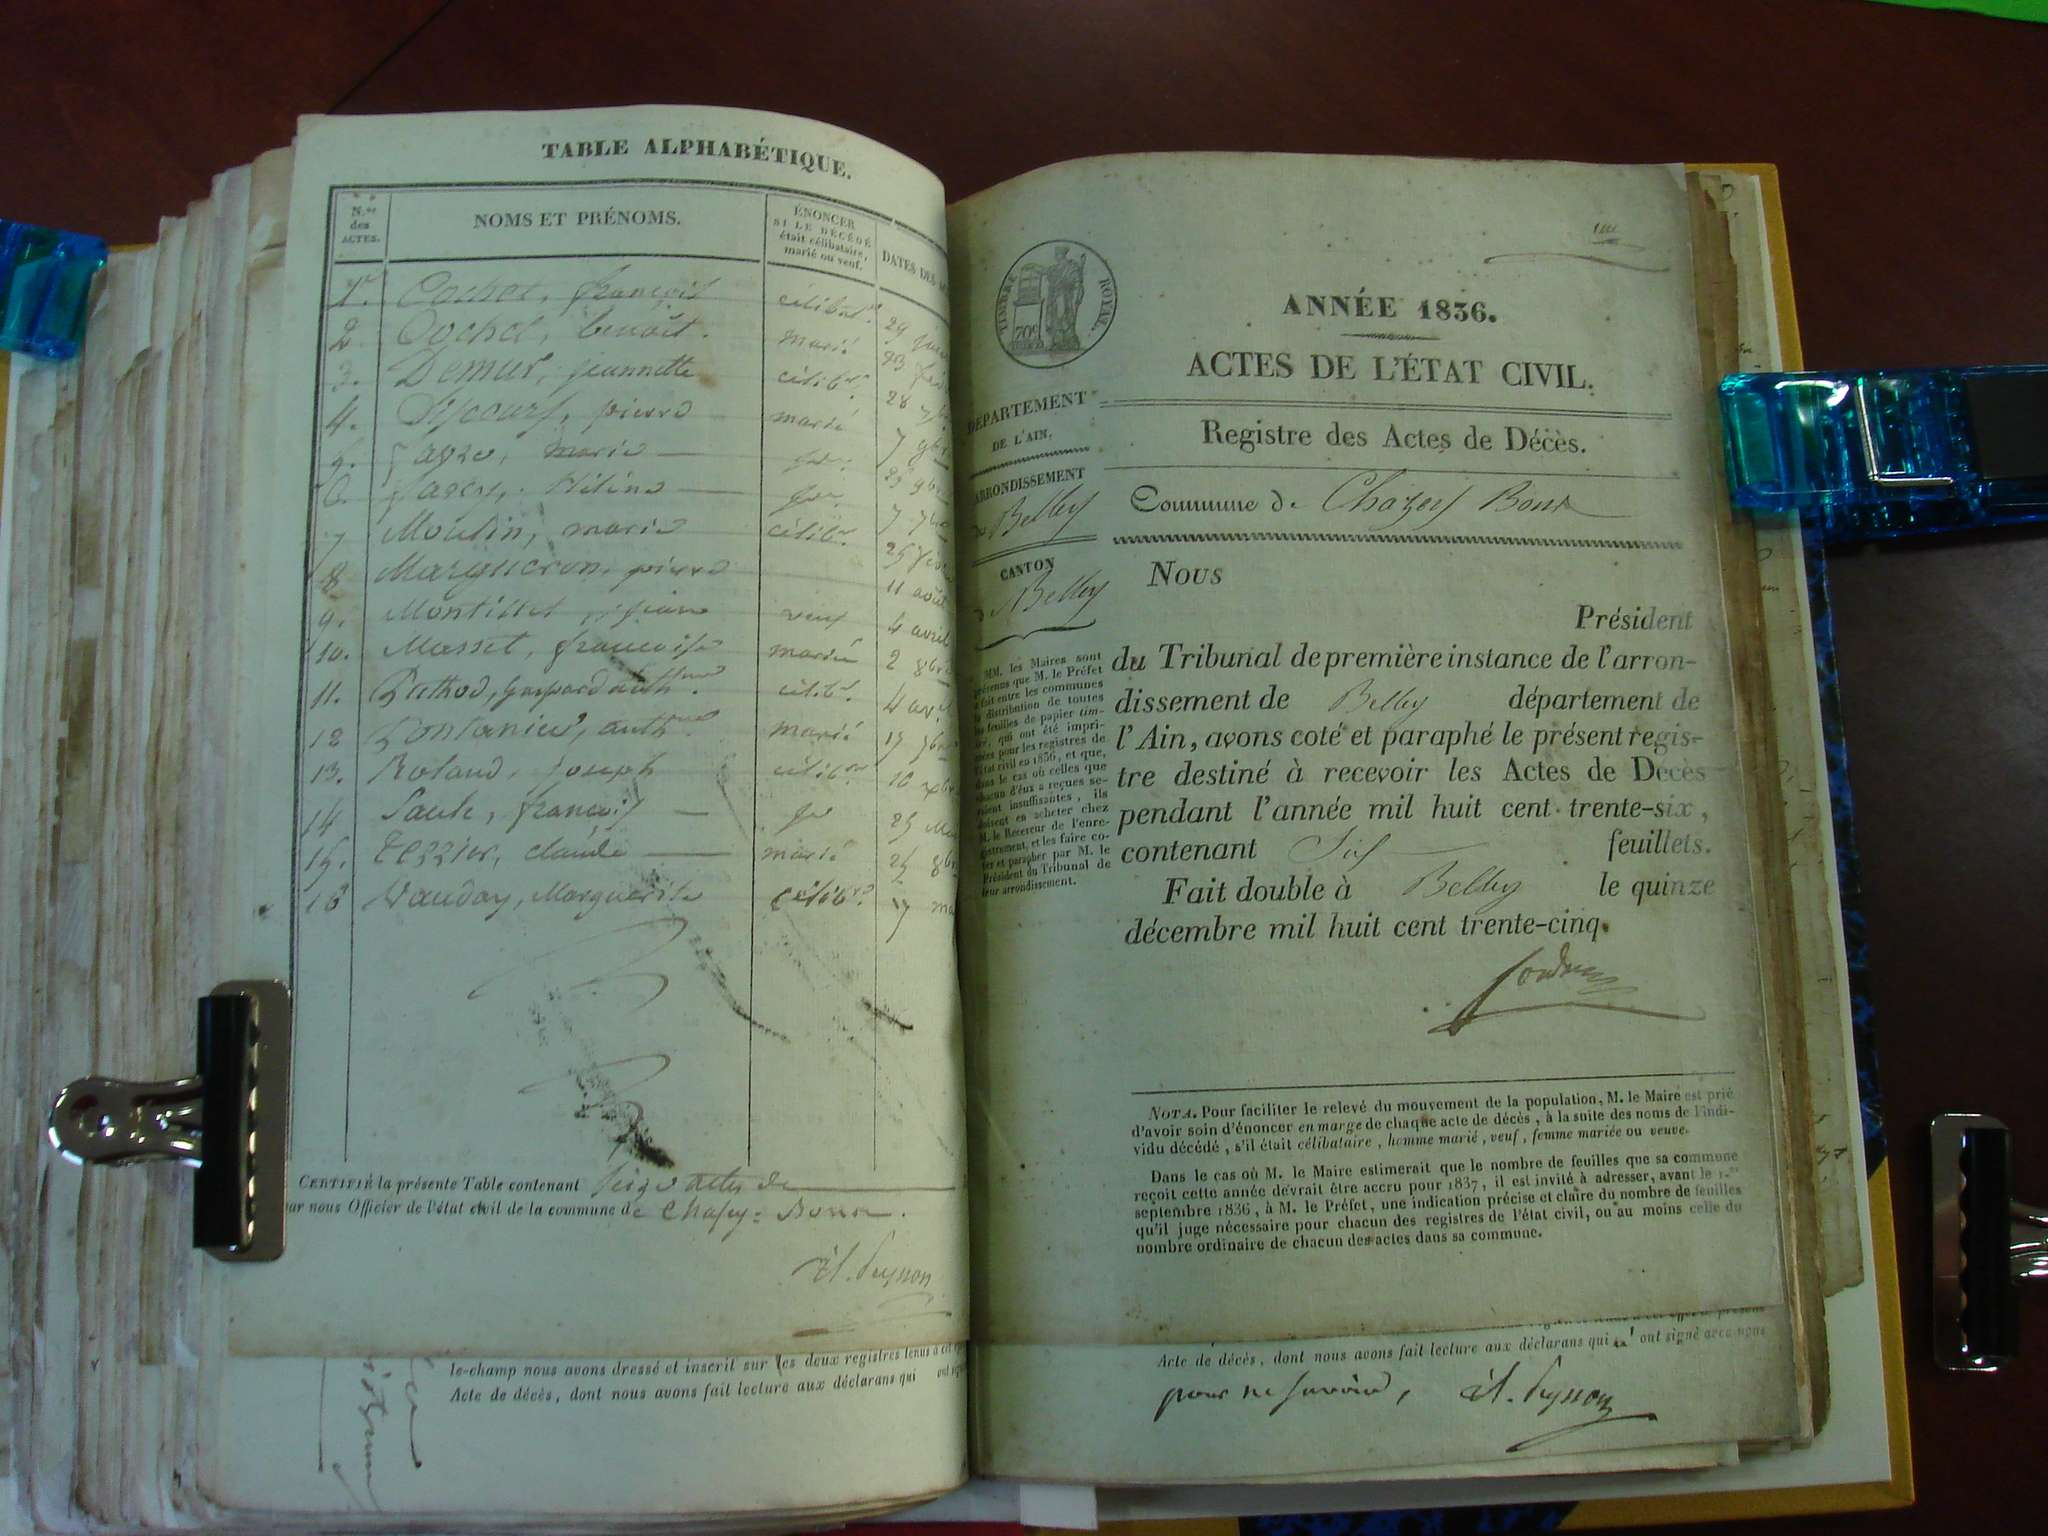 TABLE ALPHABÉTIQUE.
N.os des ACTES.
NOMS ET PRÉNOMS.
ÉNONCER SI LE DÉCÉDÉ était célibataire, marié ou veuf.
DATES DES
1er. Cochet, françois célibat.re 29
2. Cochet, benoît. marié 23
3. Demur, jeannette célib.re 28 7b
4. pierre marié 7 9br
5. marie — 9br
6. — 7 7br
7 Moulin, marie célib.re 25
8 Margueron, pierre 11 août
9. Montillet, veuf 4 avril
10. Masset, françoise mariée 2 8br
11. Rathod, gaspard anth.me célib.re 4 av.
12 anth.me marié 17
13. Roland, joseph célib.re 10
14 françois —
15. Tezzier, claude — marié 25 8br
16 Vauday, Marguerite célib.re 17 ma
CERTIFIÉ la présente Table contenant seize actes de
par nous Officier de l'état civil de la commune de Chazey-Bons.
At. Peysson
le-champ nous avons dressé et inscrit sur les deux registres tenus à cet
Acte de décès, dont nous avons fait lecture aux déclarans qui ont
TIMBRE ROYAL.
70c
ANNÉE 1836.
ACTES DE L'ÉTAT CIVIL.
DÉPARTEMENT
DE L'AIN.
ARRONDISSEMENT
de Belley
CANTON
d Belley
MM. les Maires sont
prévenus que M. le Préfet
a fait entre les communes
la distribution de toutes
les feuilles de papier tim-
bré, qui ont été impri-
mées pour les registres de
l'état civil en 1836, et que,
dans le cas où celles que
chacun d'eux a reçues se-
raient insuffisantes, ils
doivent en acheter chez
M. le Receveur de l'enre-
gistrement, et les faire co-
ter et parapher par M. le
Président du Tribunal de
leur arrondissement.
Registre des Actes de Décès.
Commune de Chazey Bons
NOUS
Président
du Tribunal de première instance de l'arron-
dissement de Belley département de
l'Ain, avons coté et paraphé le présent regis-
tre destiné à recevoir les Actes de Décès
pendant l'année mil huit cent trente-six,
contenant Six feuillets.
Fait double à Belley le quinze
décembre mil huit cent trente-cinq.
NOTA. Pour faciliter le relevé du mouvement de la population, M. le Maire est prié
d'avoir soin d'énoncer en marge de chaque acte de décès, à la suite des noms de l'indi-
vidu décédé, s'il était célibataire, homme marié, veuf, femme mariée ou veuve.
Dans le cas où M. le Maire estimerait que le nombre de feuilles que sa commune
reçoit cette année devrait être accru pour 1837, il est invité à adresser, avant le 1.er
septembre 1836, à M. le Préfet, une indication précise et claire du nombre de feuilles
qu'il juge nécessaire pour chacun des registres de l'état civil, ou au moins celle du
nombre ordinaire de chacun des actes dans sa commune.
Acte de décès, dont nous avons fait lecture aux déclarans qui ont signé avec nous
pour ne savoir, At. Peysson